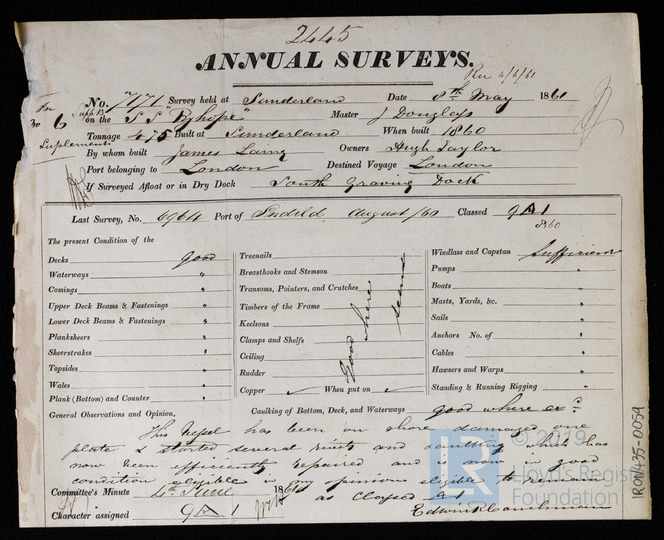 2445
ANNUAL SURVEYS.
Rec 4/6/61
No. 7171 Survey held at Sunderland Date 8th May 1861
on the S S "Ryhope" Master J Douglass
Tonnage 475 Built at Sunderland When built 1860
Suplement
By whom built James Laing Owners Hugh Taylor
Port belonging to London Destined Voyage London
If Surveyed Afloat or in Dry Dock South Graving Dock
Last Survey, No. 6964 Port of Sndrld August/60 Classed 9A1
8/60
The present Condition of the
Decks Good
Waterways "
Comings "
Upper Deck Beams & Fastenings "
Lower Deck Beams & Fastenings "
Planksheers "
Sheerstrakes "
Topsides "
Wales "
Plank (Bottom) and Counter "
Treenails
Breasthooks and Stemson
Transoms, Pointers, and Crutches
Timbers of the Frame
Keelsons
Clamps and Shelfs
Ceiling
Rudder
Copper ✓ When put on ✓
Good where seen
Windlass and Capstan Sufficient
Pumps "
Boats "
Masts, Yards, &c. "
Sails "
Anchors No. of "
Cables "
Hawsers and Warps "
Standing & Running Rigging "
General Observations and Opinion,
Caulking of Bottom, Deck, and Waterways good where exd.
This Vessel has been on shore damaged one
plate & started several rivets and caulking which has
now been efficiently repaired and is now in good
condition eligible in my opinion eligible to remain
as Classed A1
Committee's Minute 4th June 1861
Character assigned 9A1
© 2019
LR
Lloyd's Register
Foundation
IRON435-0059